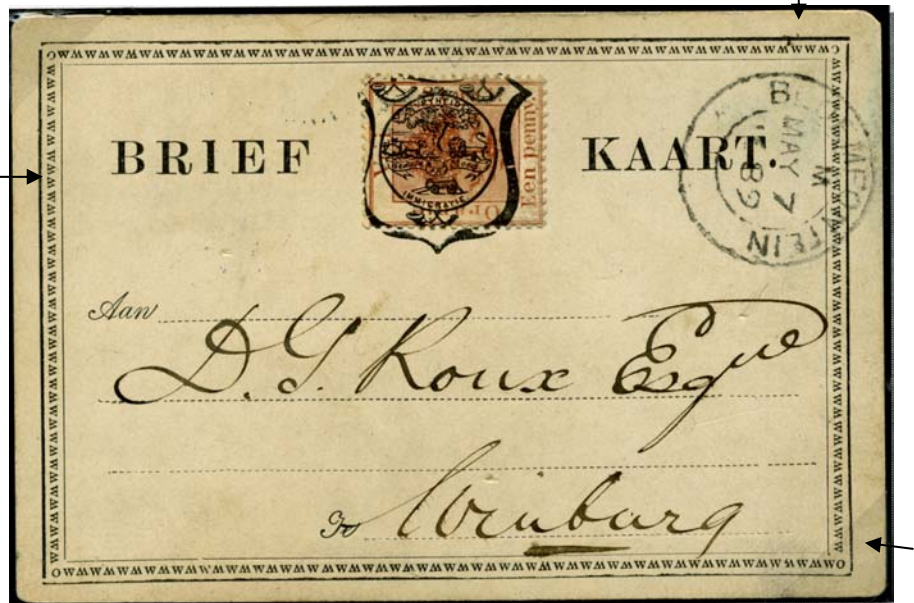 BRIEF KAART.
Een penny.
IMMIGRATIE
MAY 7
89
Aan
D. G. Roux Esqre
Te Winburg